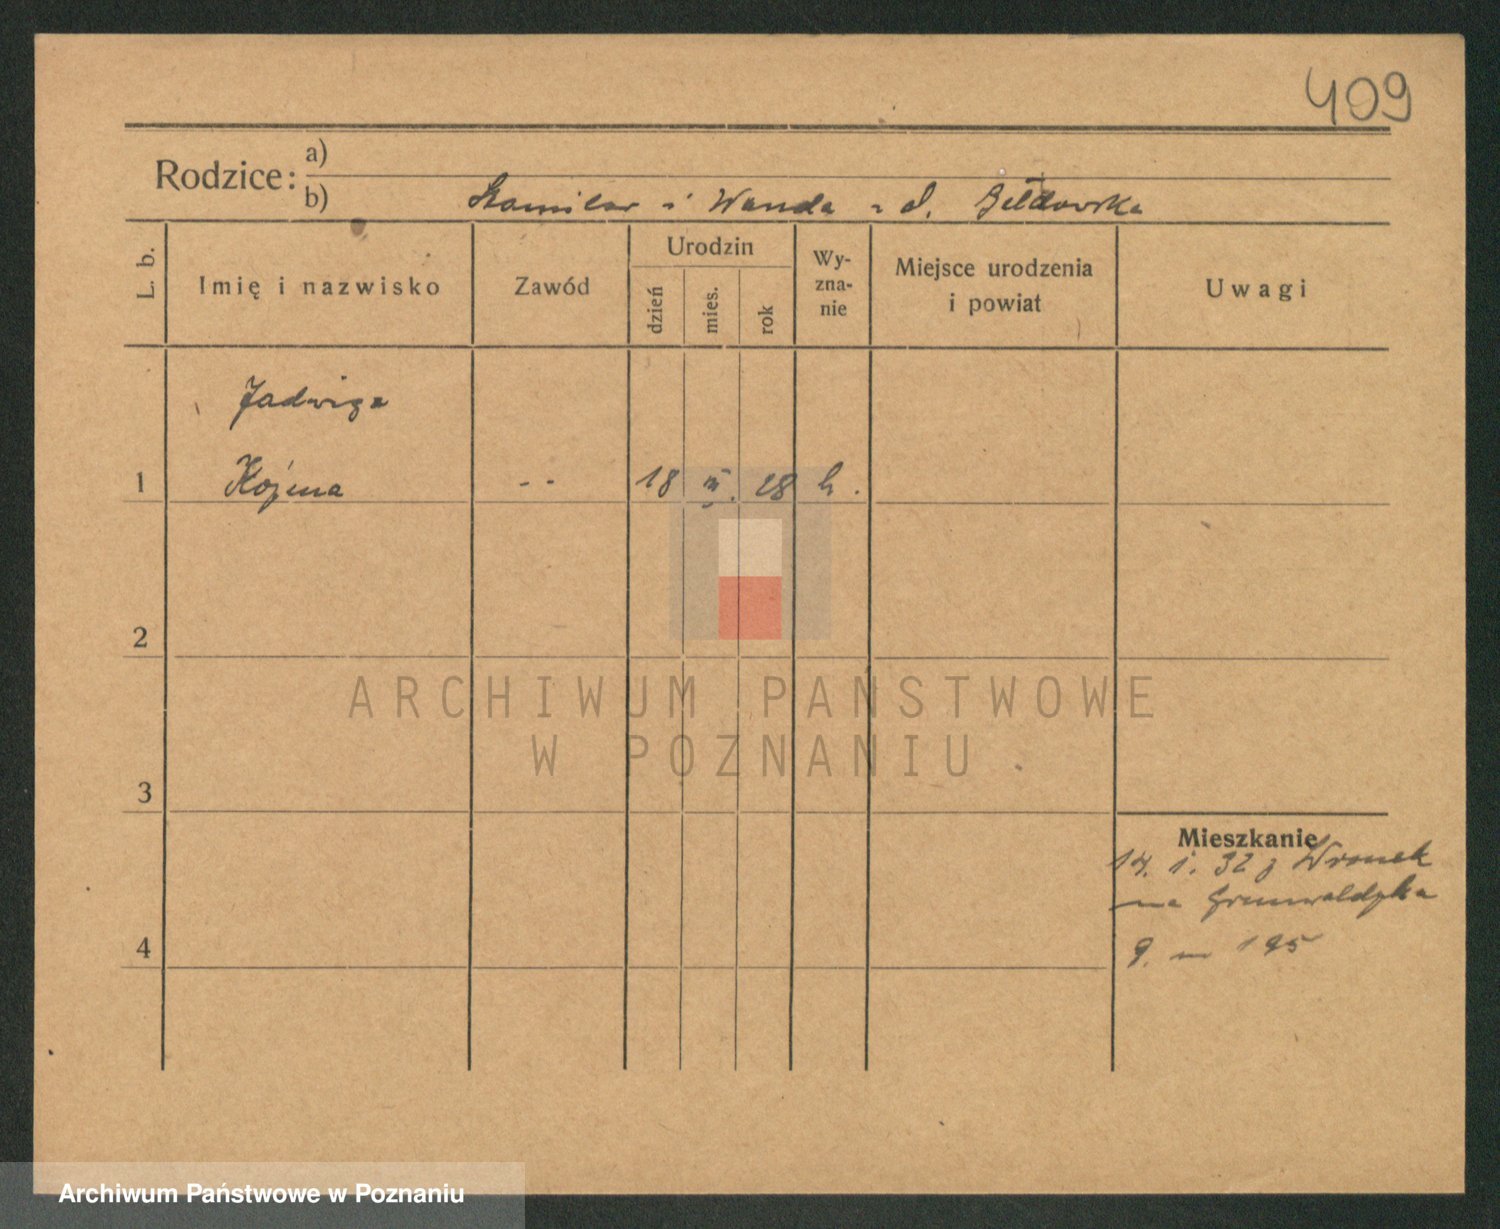 409
Rodzice: a)
b) Stanisław i Wanda z d. Bełdowska
L. b.
Imię i nazwisko
Zawód
Urodzin
dzień
mies.
rok
Wy-
zna-
nie
Miejsce urodzenia
i powiat
Uwagi
Jadwiga
1 Kojma -- 18 III. 28 k.
2
ARCHIWUM PAŃSTWOWE
W POZNANIU
3
Mieszkanie
14. 1. 32 z Wronek
na Grunwaldzka
4
9. m 195
Archiwum Państwowe w Poznaniu